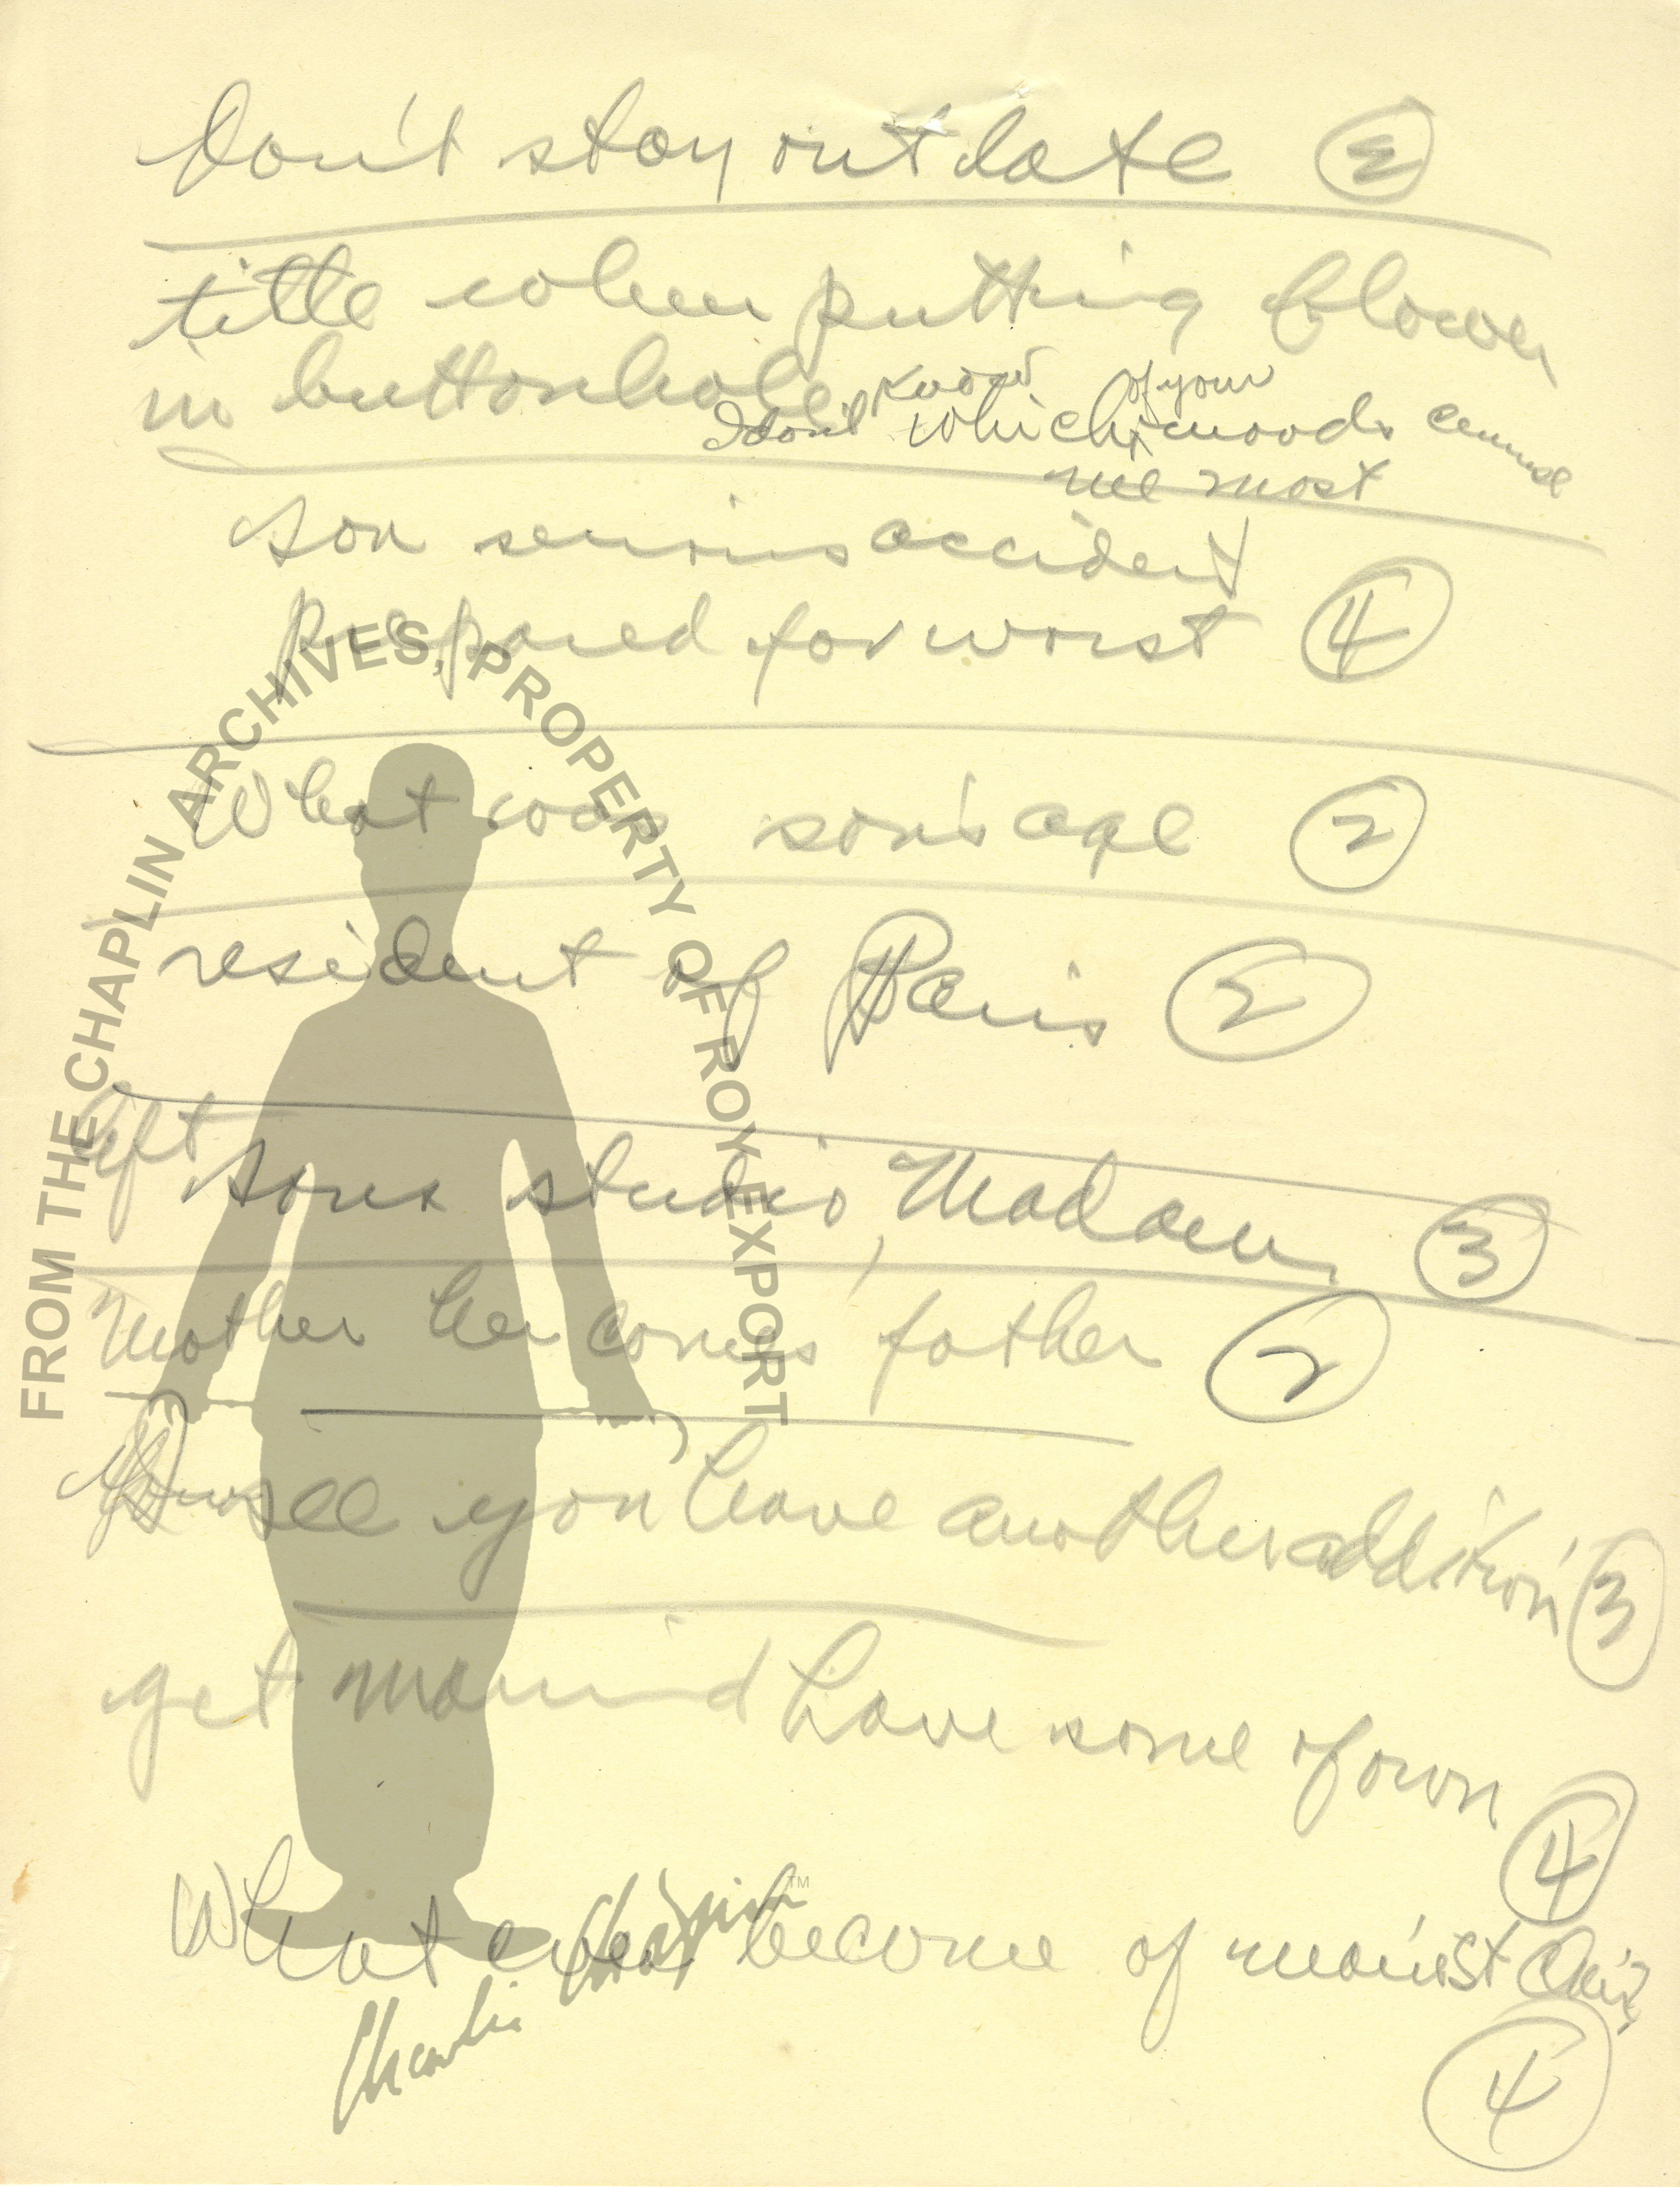 Don't stay out late ③
title when putting flower
in buttonhole
I don't know which of your moods amuse
me most
Son serious accident
prepared for worst ④
What was son's age ②
resident of Paris ②
left sons studio, Madam ③
Mother her comes father ②
see you have another addition ③
get married have some of own ④
What ever become of Marie St Clair ④
FROM THE CHAPLIN ARCHIVES, PROPERTY OF ROY EXPORT
Charlie Chaplin™